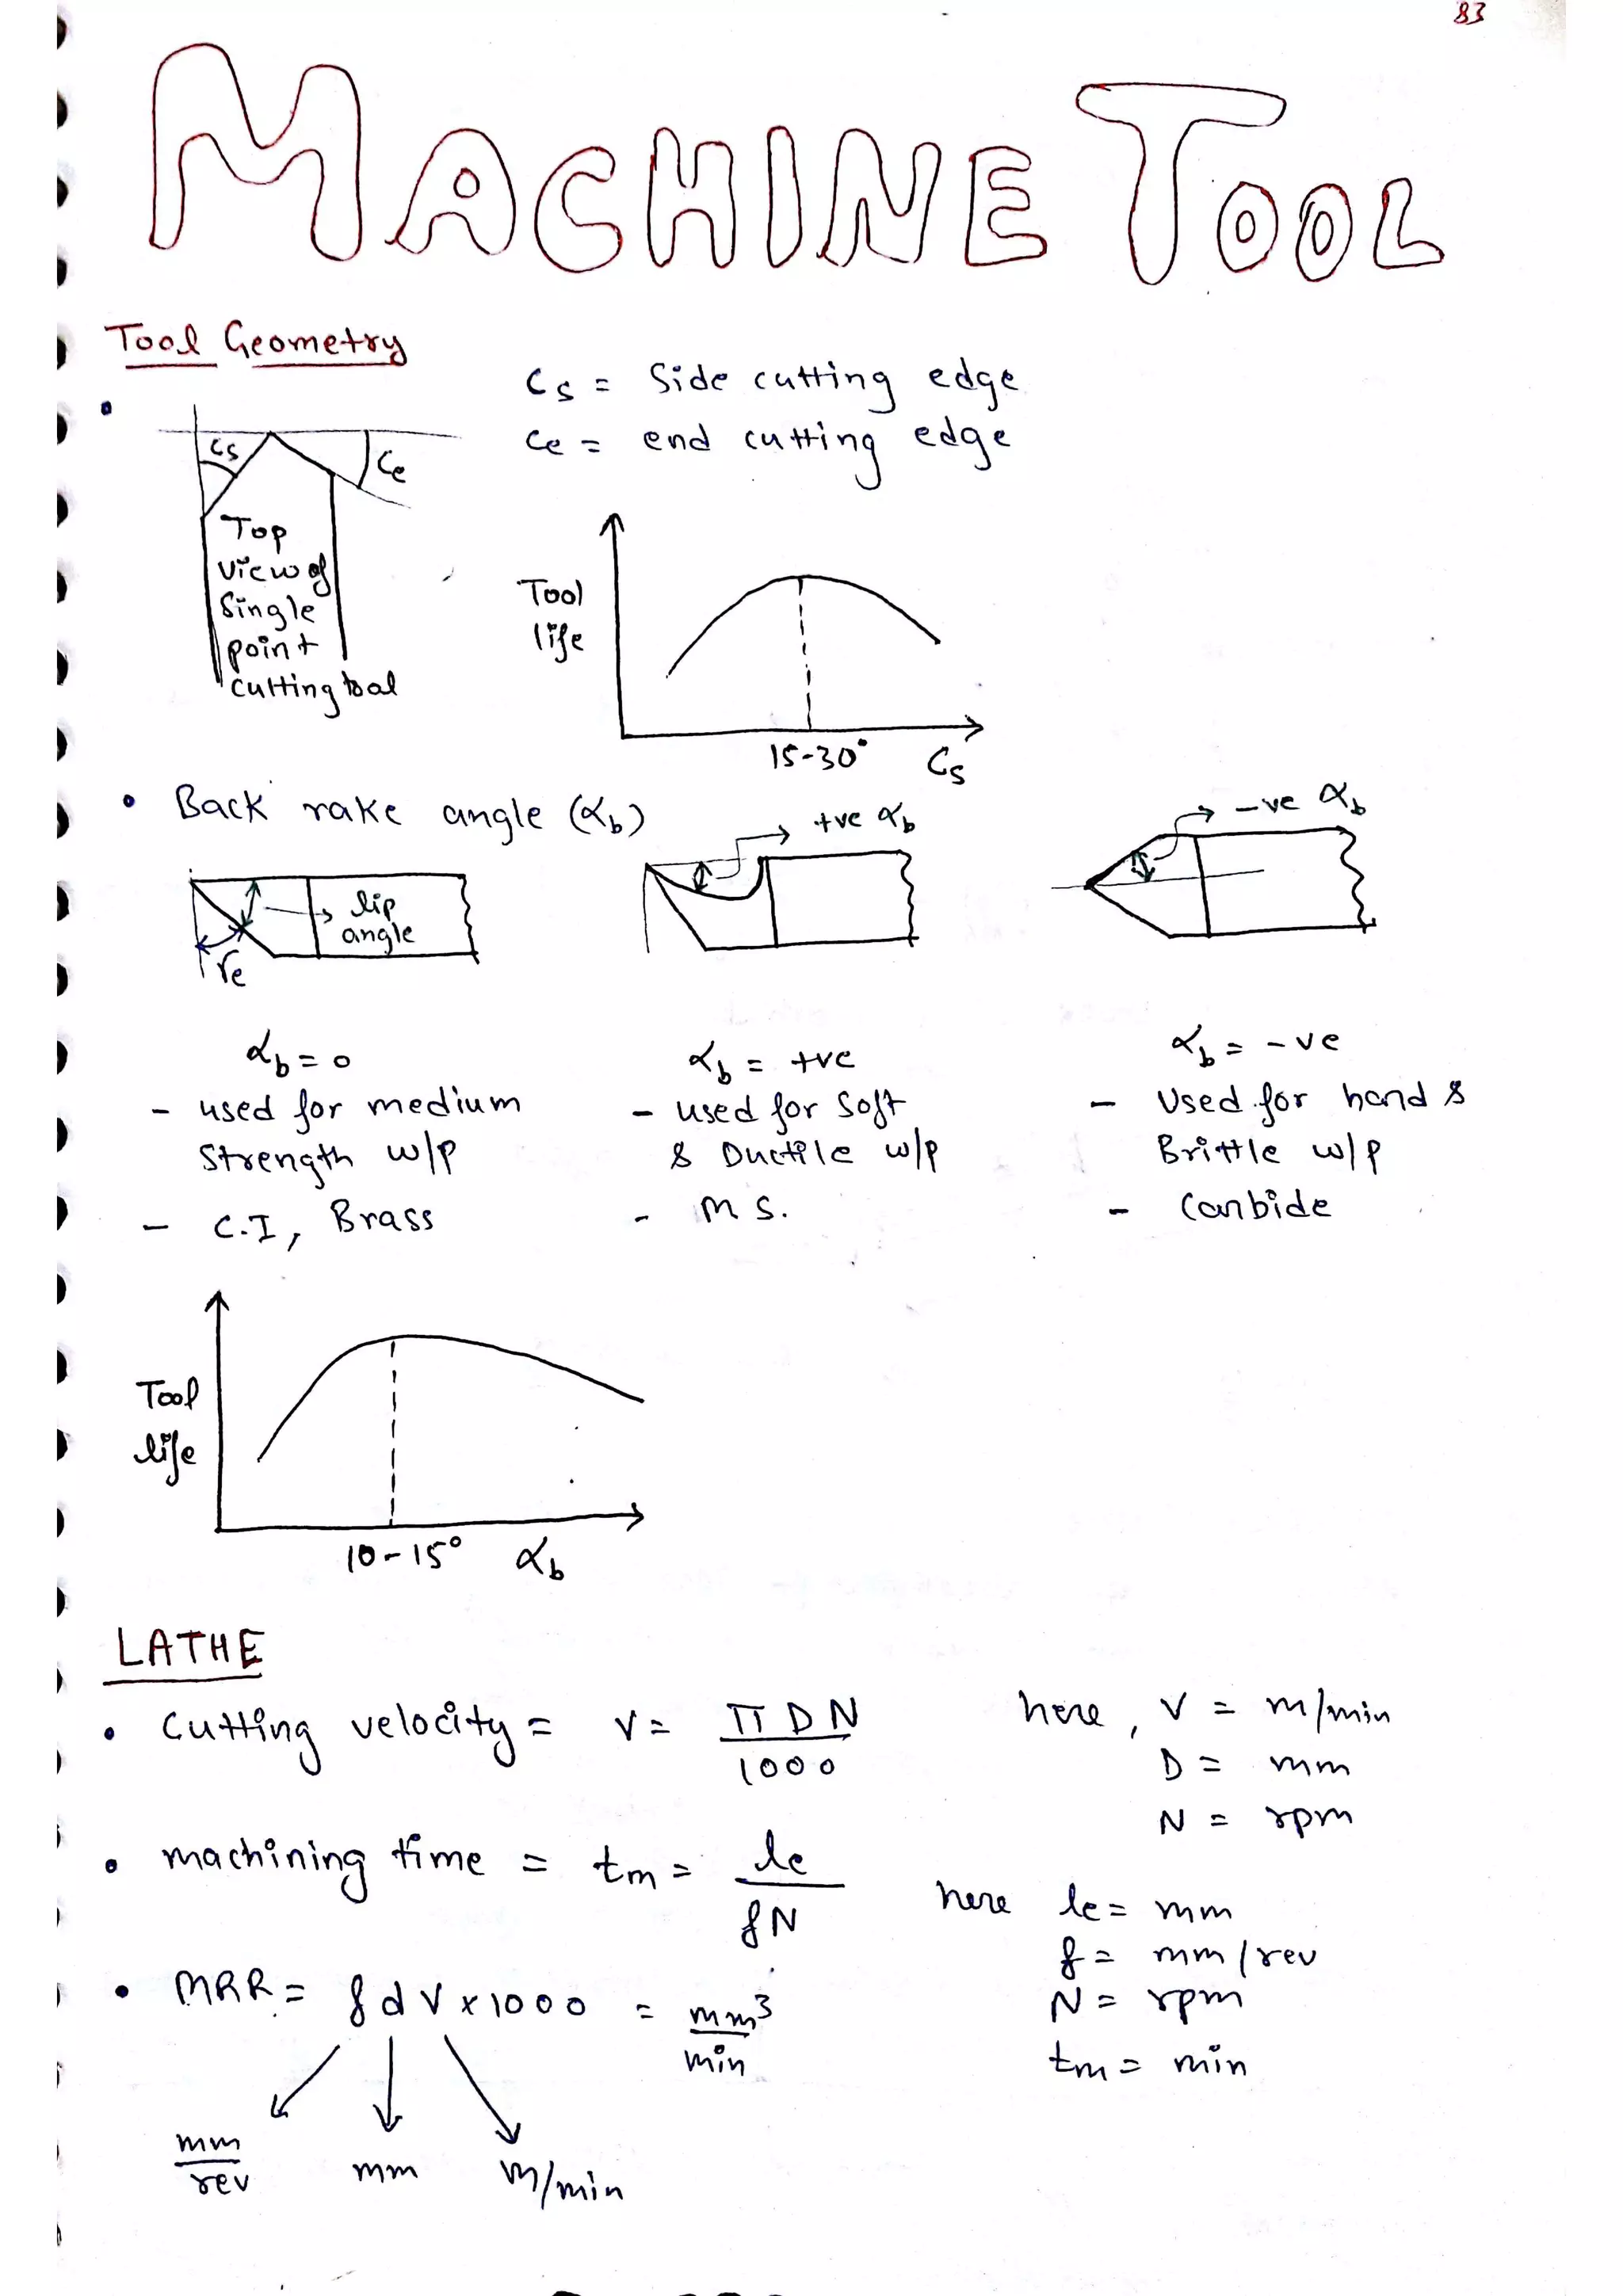 83
MACHINE TOOL
Tool Geometry
Cs = Side cutting edge
Ce = end cutting edge
Cs
Ce
Top
view of
Single
point
Cutting tool
Tool
life
15-30°
Cs
• Back rake angle (αb)
+ve αb
-ve αb
lip
angle
γe
αb = 0
- used for medium
Strength w/p
- C.I, Brass
αb = +ve
- used for Soft
& Ductile w/p
- M S.
αb = -ve
- Used for hard &
Brittle w/p
- Carbide
Tool
life
10-15°
αb
LATHE
• Cutting velocity = V = πDN/1000
here, V = m/min
D = mm
N = rpm
• machining time = tm = le/fN
here le = mm
f = mm/rev
N = rpm
tm = min
• MRR = f d V x 1000 = mm³/min
mm/rev
mm
m/min